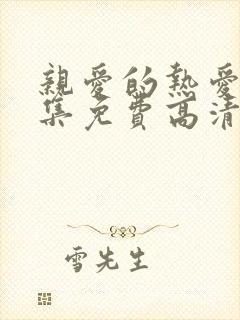 親愛的熱愛
集免費高清
雪先生